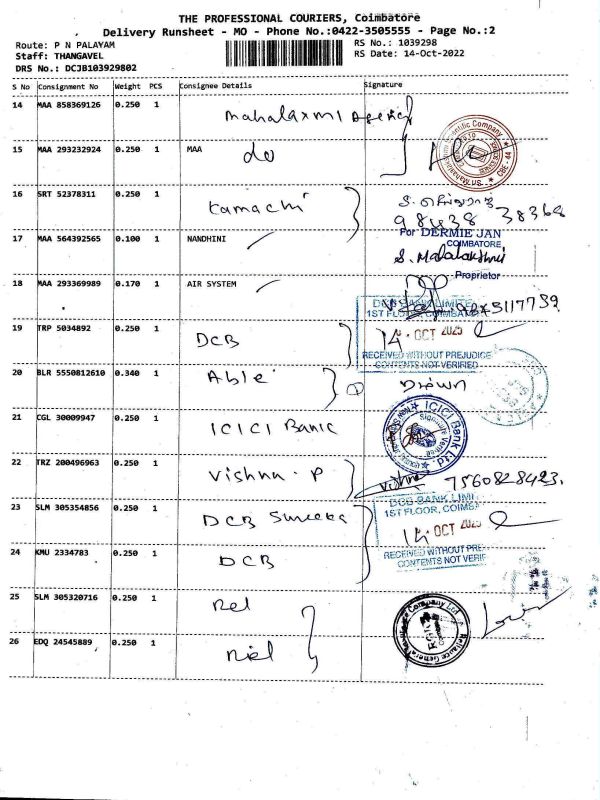 THE PROFESSIONAL COURIERS, Coimbatore
Delivery Runsheet - MO - Phone No.:0422-3505555 - Page No.:2
Route: P N PALAYAM
RS No.: 1039298
Staff: THANGAVEL
RS Date: 14-Oct-2022
DRS No.: DCJB103929802
S No Consignment No Weight PCS Consignee Details Signature
14 MAA 858369126 0.250 1 Mahalaxmi Agency
15 MAA 293232924 0.250 1 MAA do
16 SRT 52378311 0.250 1 Kamachi
98438 38368
17 MAA 564392565 0.100 1 NANDHINI
For DERMIE JAN
COIMBATORE
S. Mahalakshmi
Proprietor
18 MAA 293369989 0.170 1 AIR SYSTEM
DCB BANK LIMITE
1ST FLOOR, COIMBAT
19 TRP 5034892 0.250 1 DCB
14 OCT 2025
RECEIVED WITHOUT PREJUDICE
CONTENTS NOT VERIFIED
20 BLR 5550812610 0.340 1 Able 1
21 CGL 30009947 0.250 1 ICICI Bank
ICICI Bank Ltd.
Signature Verified
22 TRZ 200496963 0.250 1 Vishnu. P
Vishnu 7560828423.
DCB BANK LIMI
1ST FLOOR, COIMBA
23 SLM 305354856 0.250 1 DCB
14 OCT 2025
24 KMU 2334783 0.250 1 DCB
RECEIVED WITHOUT PRE
CONTENTS NOT VERIF
25 SLM 305320716 0.250 1 Rel
Reliance General Insurance Company Ltd
26 EDQ 24545889 0.250 1 Rel